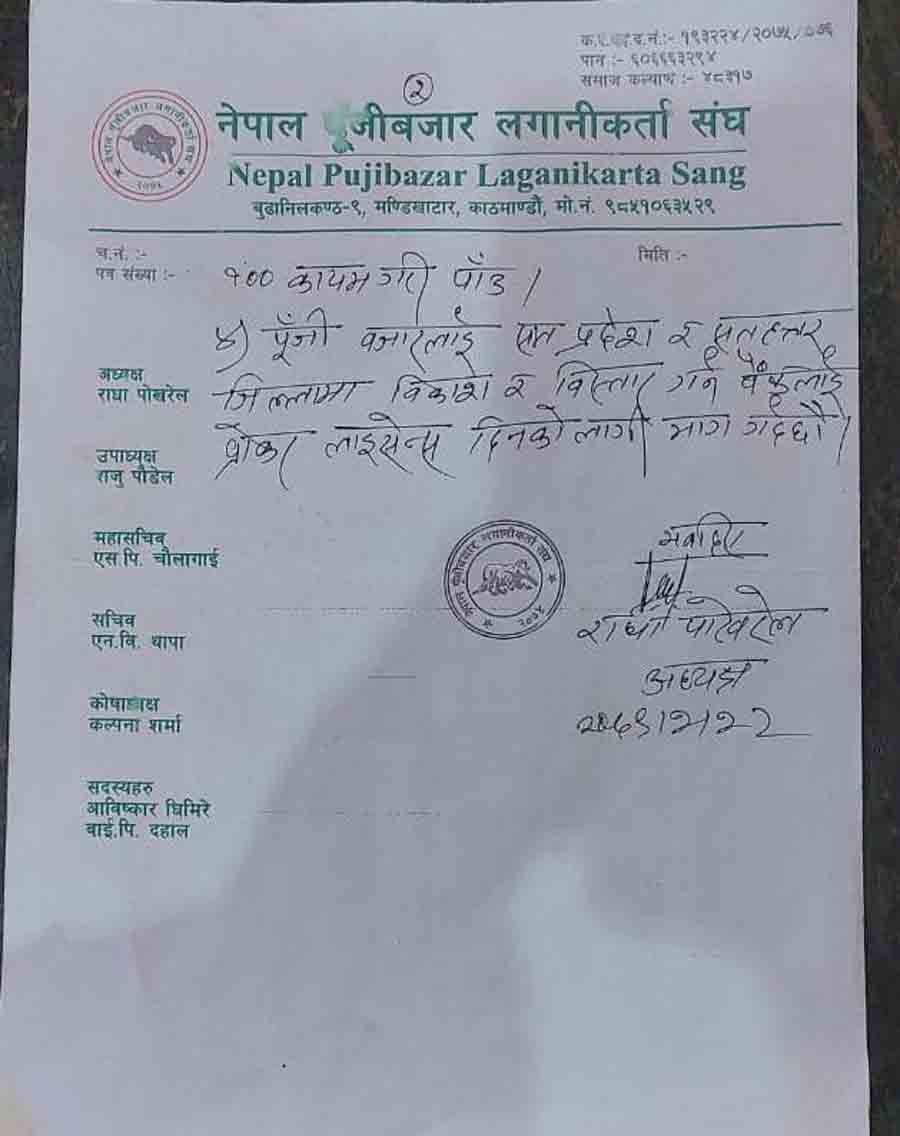 क.ए.का.द.नं.:- १९३२२४/२०७५/०७६
पान :- ६०६६६३२९४
समाज कल्याण :- ४८३१७
२
नेपाल पूँजीबजार लगानीकर्ता संघ
Nepal Pujibazar Laganikarta Sang
बुढानिलकण्ठ-९, मण्डिखाटार, काठमाण्डौं, मो.नं. ९८५१०६३५२९
च.नं. :-
पत्र संख्या :-
मिति :-
१०० कायम गरी पाँउ ।
४) पूँजी बजारलाई सात प्रदेश र सतहत्तर
जिल्लामा विकाश र विस्तार गर्न बैंकलाई
ब्रोकर लाइसेन्स दिनको लागी माग गर्दछौं ।
अध्यक्ष
राधा पोखरेल
उपाध्यक्ष
राजु पौडेल
महासचिव
एस.पि. चौलागाई
सचिव
एन.वि. थापा
कोषाध्यक्ष
कल्पना शर्मा
सदस्यहरु
आविष्कार घिमिरे
वाई.पि. दहाल
नेपाल पूँजीबजार लगानीकर्ता संघ
२०७६
राधा पोखरेल
अध्यक्ष